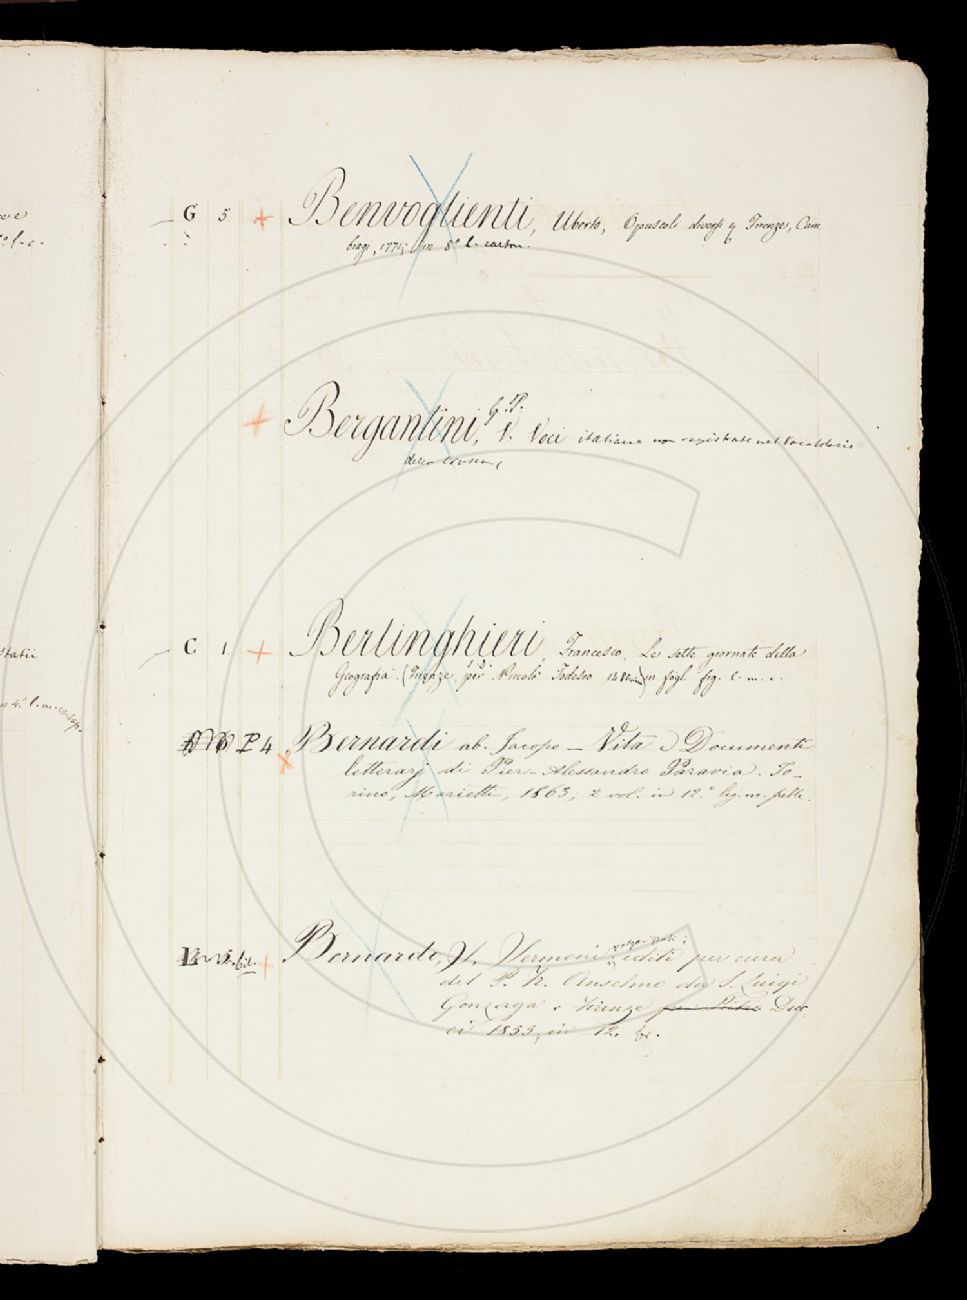 G 5 + Benvoglienti, Uberto, Opuscoli diversi Firenze, Cam
biagi, 1771, in 8º l. carton.
+ Bergantini, G. P. V. Voci italiane non registrate nel Vocabolario
della Crusca,
C 1 + Berlinghieri Francesco, Le sette giornate della
Geografia. (Firenze, per Niccolò Todesco 1480) in fogl. fig. l. m. c.
P 4 x Bernardi ab. Jacopo — Vita e Documenti
letterarj di Pier-Alessandro Paravia. To-
rino, Marietti, 1863, 2 vol. in 12.º leg. m. pelle.
L bis. + Bernardo, S. Sermoni volgarizzati; editi per cura
del P. Anselmo da S. Luigi
Gonzaga. Firenze Duc
ci 1855, in 12. br.